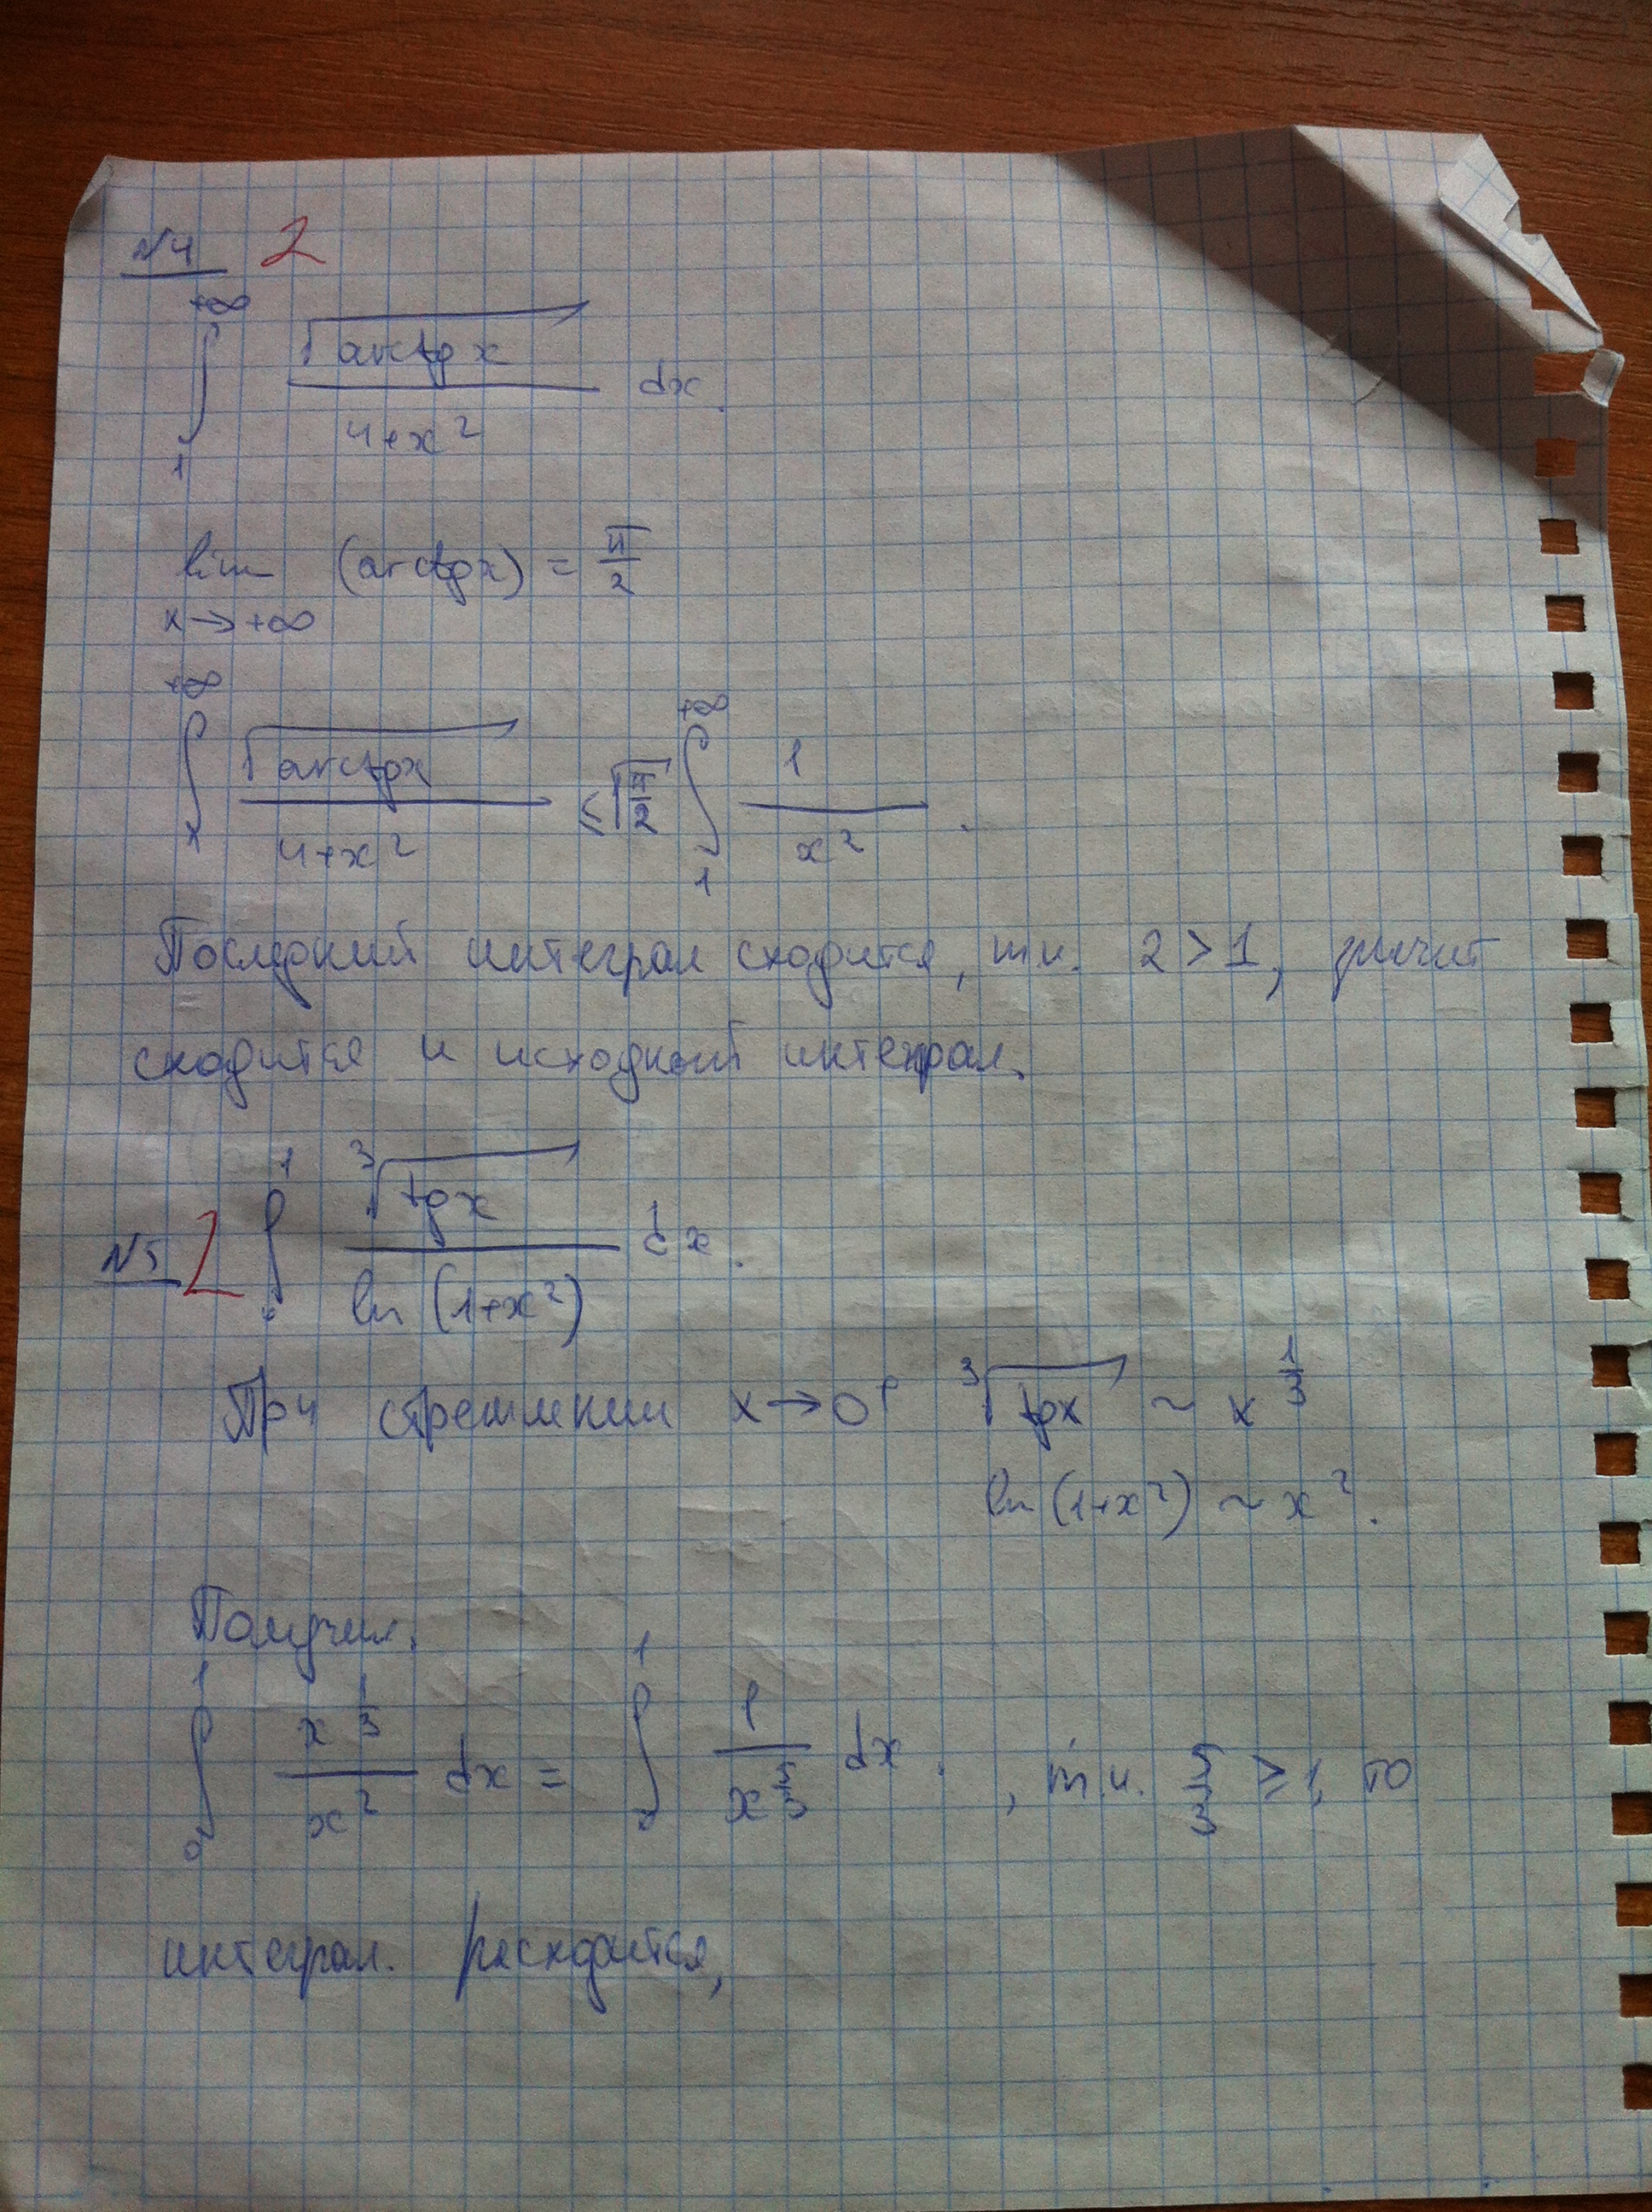 №4 2
∫₁^{+∞} √(arctg x) / (4+x²) dx.
lim_{x→+∞} (arctg x) = π/2
∫₁^{+∞} √(arctg x) / (4+x²) ≤ √(π/2) ∫₁^{+∞} 1 / x² .
Последний интеграл сходится, т.к. 2 > 1, значит
сходится и исходный интеграл.
№5 2 ∫₀^1 ∛(tg x) / ln (1+x²) dx.
При стремлении x → 0 ∛(tg x) ~ x^{1/3}
ln (1+x²) ~ x².
Получим.
∫₀^1 x^{1/3} / x² dx = ∫₀^1 1 / x^{5/3} dx . , т.к. 5/3 ≥ 1, то
интеграл. расходится,